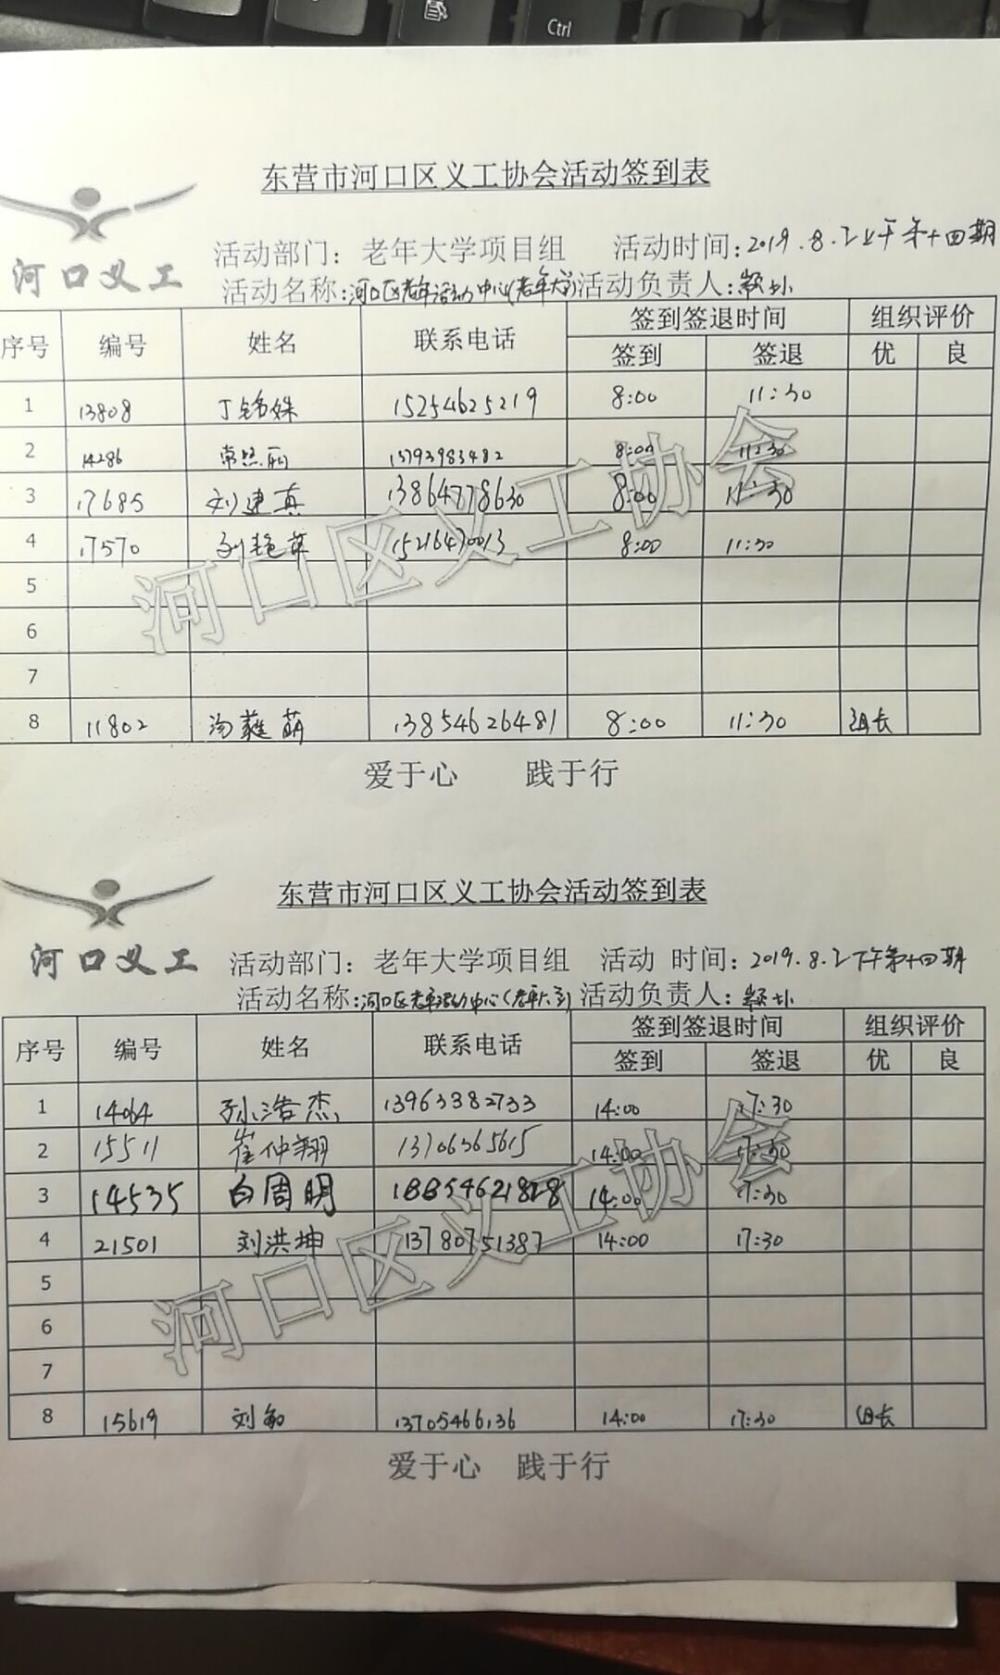 Ctrl
东营市河口区义工协会活动签到表
河口义工
活动部门：老年大学项目组 活动时间：2019.8.2上午第十四期
活动名称：河口区老年活动中心(老年大学) 活动负责人：
序号 编号 姓名 联系电话 签到签退时间 组织评价
签到 签退 优 良
1 13808 丁铭姝 15254625219 8:00 11:30
2 14286 常照丽 13793983482 8:00 11:30
3 17685 刘建真 13864778630 8:00 11:30
4 17570 刘艳苹 15216470013 8:00 11:30
5
6
7
8 11802 13854626481 8:00 11:30 组长
爱于心 践于行
河口区义工协会
东营市河口区义工协会活动签到表
河口义工
活动部门：老年大学项目组 活动 时间：2019.8.2下午第十四期
活动名称：河口区老年活动中心(老年大学) 活动负责人：
序号 编号 姓名 联系电话 签到签退时间 组织评价
签到 签退 优 良
1 14064 孙浩杰 13963382733 14:00 17:30
2 15511 崔仲翔 13706365615 14:00 17:30
3 14535 白周明 18854621828 14:00 17:30
4 21501 刘洪坤 13780751387 14:00 17:30
5
6
7
8 15619 刘敏 13705466136 14:00 17:30 组长
爱于心 践于行
河口区义工协会